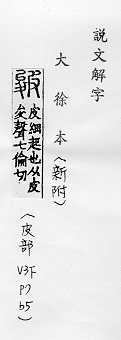 說文解字
大徐本(新附)
皴
皮細起也从皮
夋聲七倫切
(皮部 V3下 P7 b5)